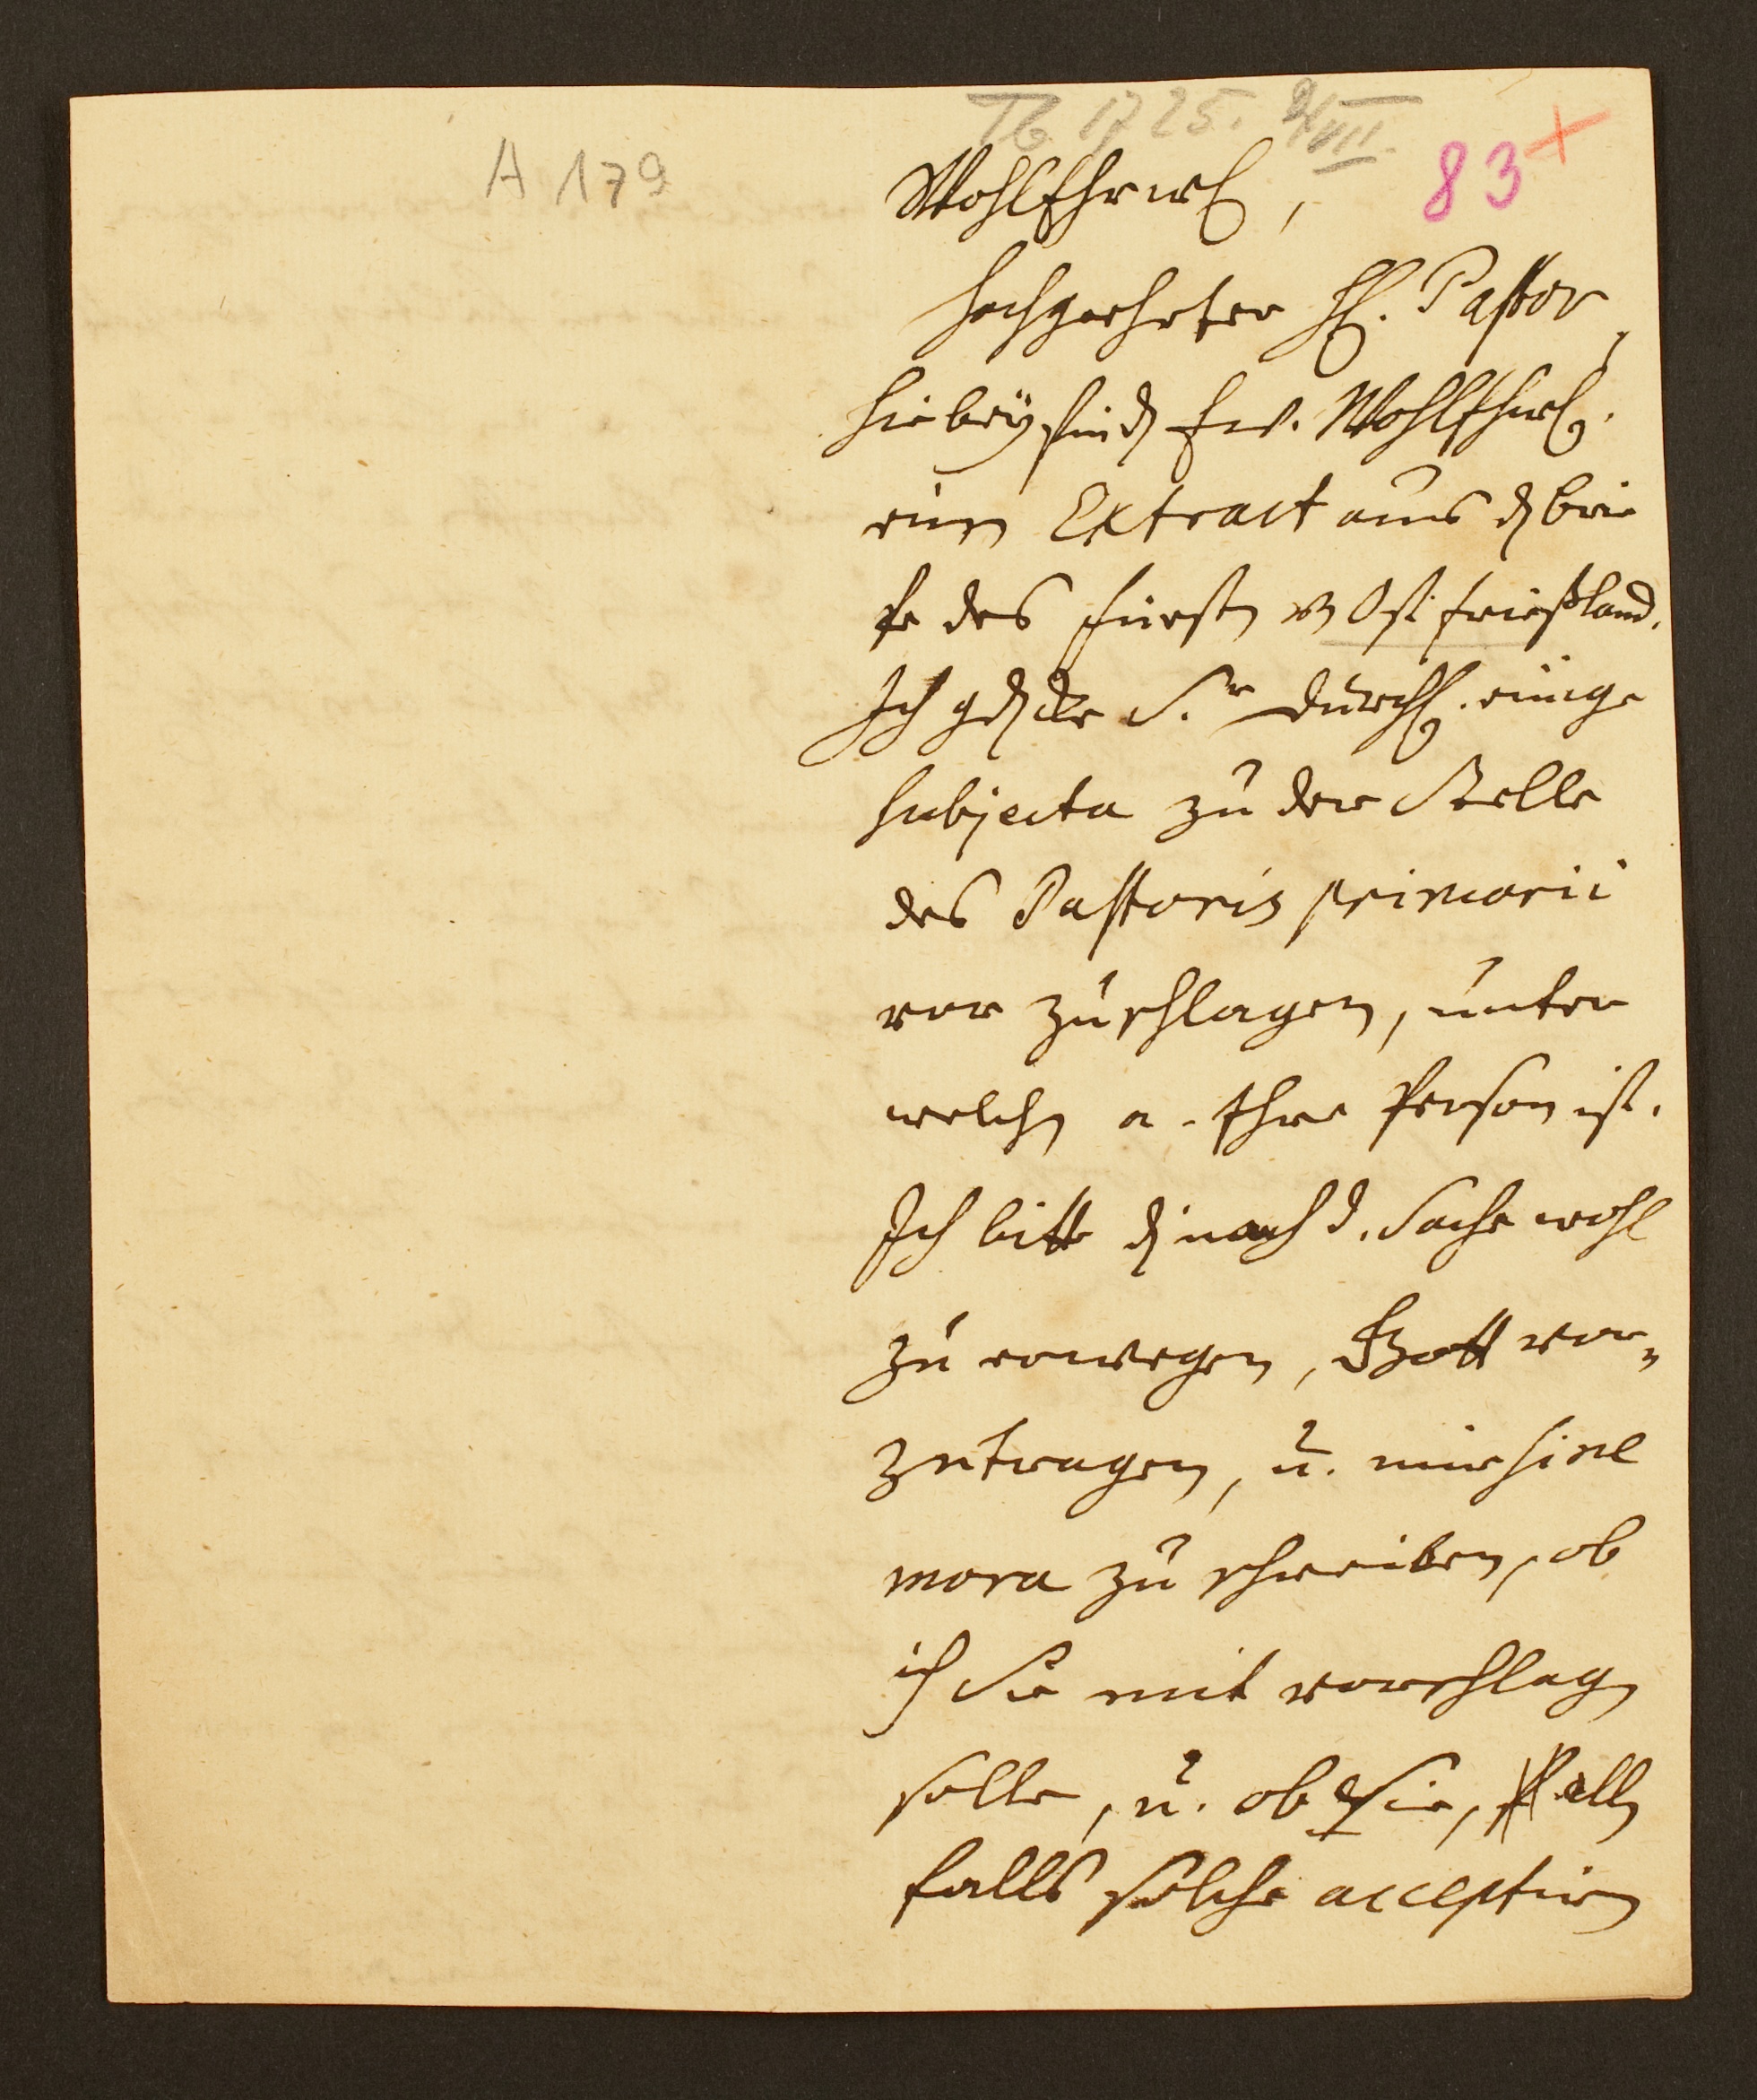 Tb 1725. 9/VIII.
A 179
83 +
WohlEhrw.,
Hochgeehrter H. Pastor,
Hiebey sind Ew. WohlEhrw.
einen Extract aus d. brie
fe des Fürsten v Ost frießland.
Ich gedencke Sr. Durchl. einige
subjecta zu der Stelle
des Pastoris primarii
vor zuschlagen, unter
welchen a. Ihre Person ist.
Ich bitte d. nach d. Sache wohl
zu erwegen, Gott vor„
zutragen, u. mir sine
mora zu schreiben, ob
ich Sie mit vorschlagen
solle, u. ob Sie, allen
falls solche acceptiren